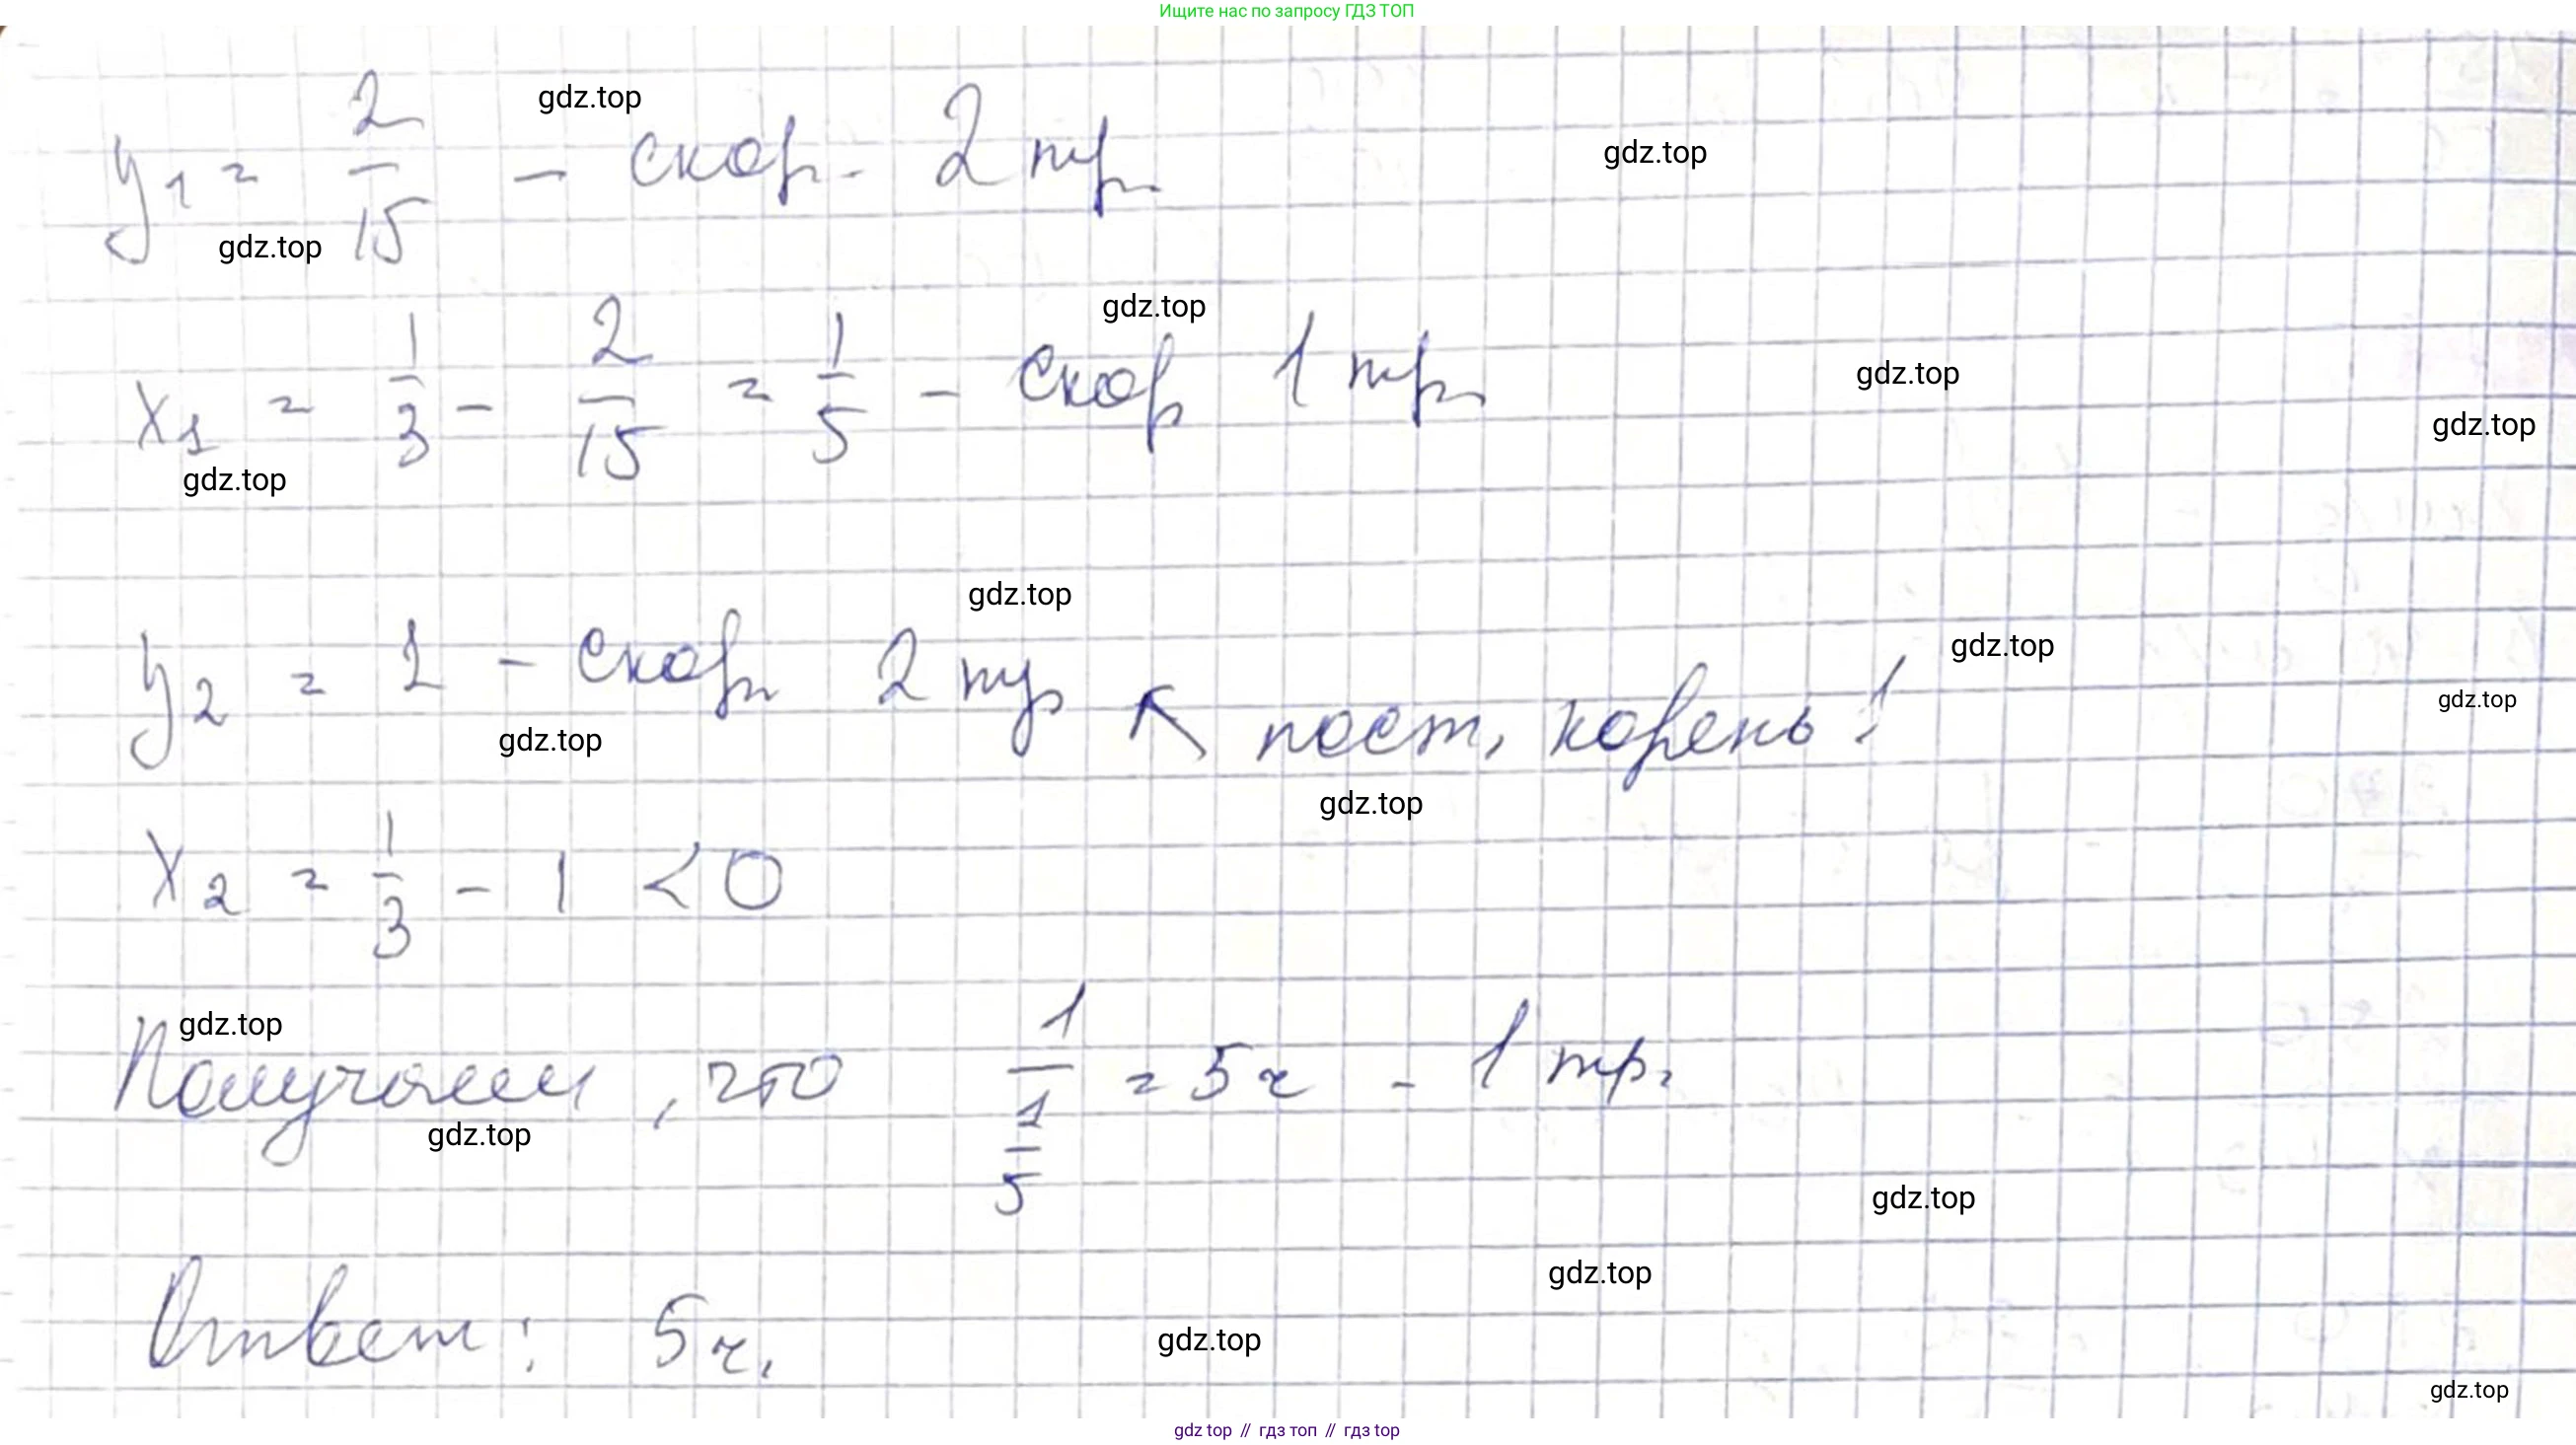 Ищите нас по запросу ГДЗ ТОП
gdz.top
y₁ = 2/15 - скор. 2 тр.
gdz.top
gdz.top
gdz.top
x₁ = 1/3 - 2/15 = 1/5 - скор 1 тр.
gdz.top
gdz.top
gdz.top
gdz.top
y₂ = 1 - скор 2 тр ↖ пост. корень!
gdz.top
gdz.top
gdz.top
gdz.top
x₂ = 1/3 - 1 < 0
gdz.top
Получаем, что 1/(1/5) = 5ч - 1 тр.
gdz.top
gdz.top
gdz.top
Ответ: 5ч.
gdz.top
gdz.top
gdz top // гдз топ // гдз top